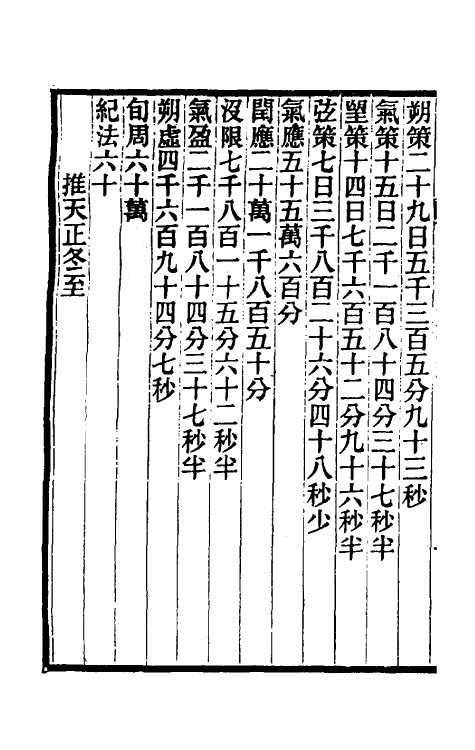 朔策二十九日五千三百五分九十三秒
氣策十五日二千一百八十四分三十七秒半
望策十四日七千六百五十二分九十六秒半
弦策七日三千八百二十六分四十八秒少
氣應五十五萬六百分
閏應二十萬一千八百五十分
沒限七千八百一十五分六十二秒半
氣盈二千一百八十四分三十七秒半
朔虛四千六百九十四分七秒
旬周六十萬
紀法六十
推天正冬至